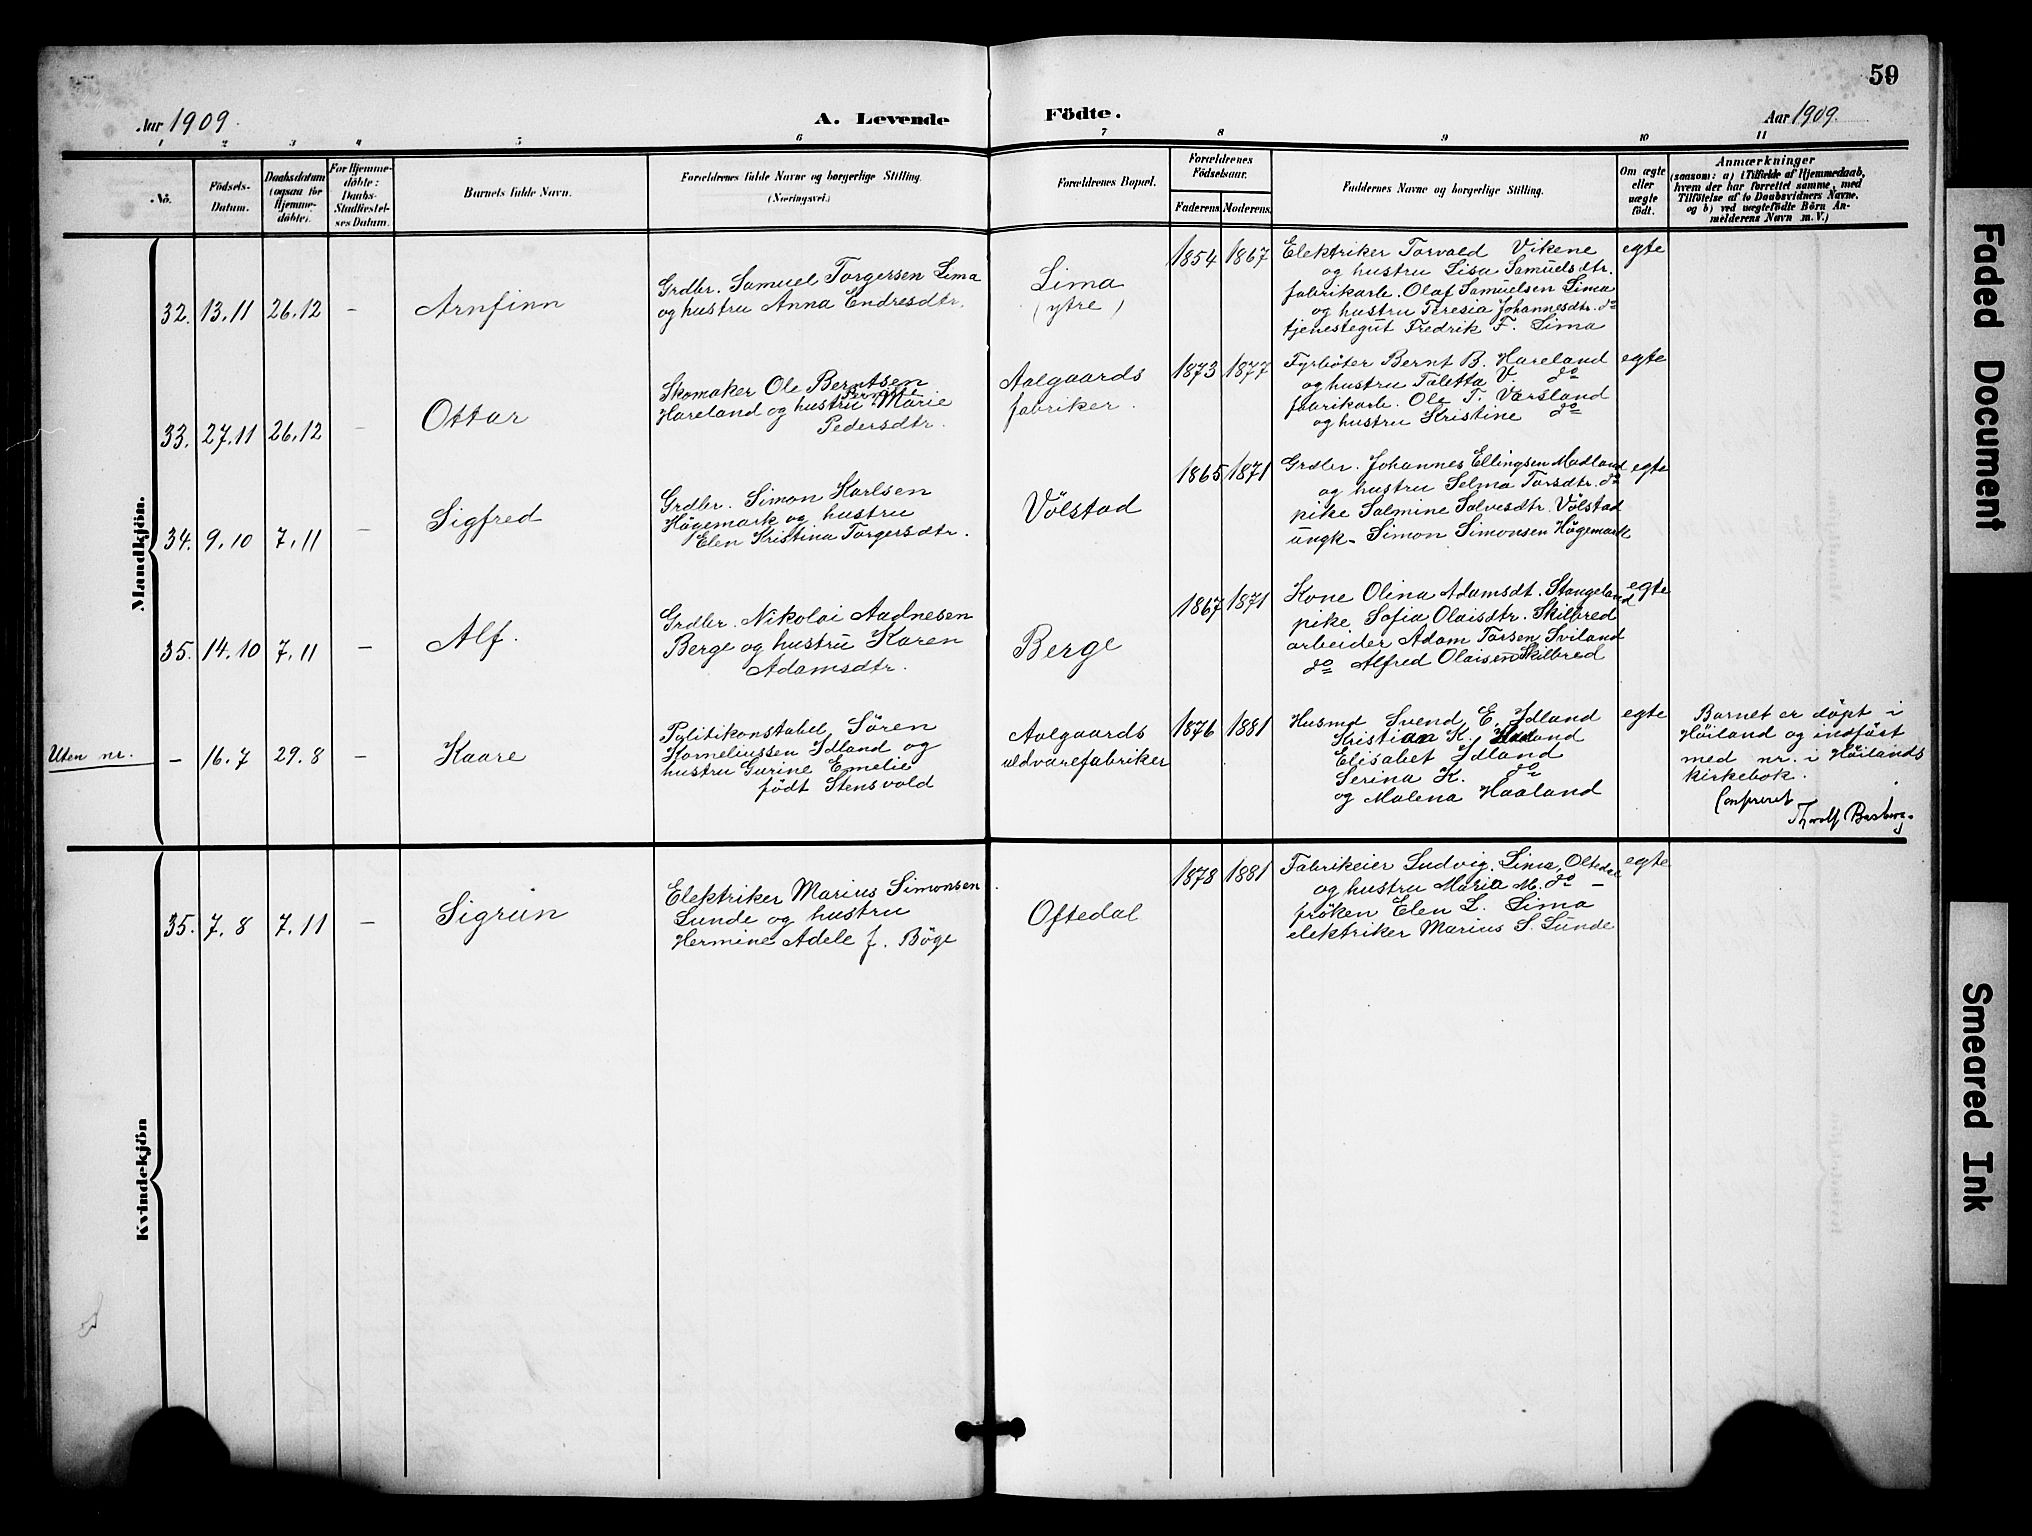 59
Aar 1909.
A. Levende Födte.
Aar 1909.
1 2 3 4 5 6 7 8 9 10 11
No.
Födsels-
Datum.
Daabsdatum
(ogsaa for
Hjemme-
döbte).
For Hjemme-
döbte:
Daabs-
Stadfæstel-
ses Datum.
Barnets fulde Navn.
Forældrenes fulde Navne og borgerlige Stilling.
(Næringsvei.)
Forældrenes Bopæl.
Forældrenes
Födselsaar.
Faderens. Moderens.
Faddernes Navne og borgerlige Stilling.
Om ægte
eller
uægte
födt.
Anmærkninger
(saasom: a) i Tilfælde af Hjemmedaab,
hvem der har forrettet samme, med
Tilföielse af to Daabsvidners Navne,
og b) ved uægtefödte Börn An-
melderens Navn m. V.)
Mandkjön.
32. 13.11 26.12 –
Arnfinn
Grdbr. Samuel Torgersen Lima
og hustru Anna Endresdtr.
Lima
(ytre)
1854 1867
Elektriker Torvald Vikene
og hustru Lisa Samuelsdtr.
fabrikarb. Olaf Samuelsen Lima
og hustru Teresia Johannesdtr. do
tjenestegut Fredrik F. Lima
egte
33. 27.11 26.12 –
Ottar
Skomaker Ole Berntsen
Hareland og hustru Pernille Marie
Pedersdtr.
Aalgaards
fabriker.
1873 1877
Fyrbøter Bernt B. Hareland
og hustru Taletta V. do
fabrikarb. Ole T. Varsland
og hustru Kristine do
egte
34. 9.10 7.11 –
Sigfred
Grdbr. Simon Karlsen
Högemark og hustru
Elen Kristina Torgersdtr.
Völstad
1865 1871
Grdbr. Johannes Ellingsen Madland
og hustru Selma Torsdtr. do
pike Salmine Salvesdtr. Völstad
ungk. Simon Simonsen Högemark
egte
35. 14.10 7.11 –
Alf.
Grdbr. Nikolai Aadnesen
Berge og hustru Karen
Adamsdtr.
Berge
1867 1871
Kone Olina Adamsdt. Stangeland
pike Sofia Olaisdtr. Skilbred
arbeider Adam Torsen Sviland
do Alfred Olaisen Skilbred
egte
Uten nr. – 16.7 29.8 –
Kaare
Politikonstabel Sören
Korneliussen Idland og
hustru Gurine Emelie
født Stensvold
Aalgaards
uldvarefabriker
1876 1881
Husmd Svend E. Idland
Kristian K.
Elisabet Idland
Serina K. do
og Malena Haaland
egte
Barnet er döpt i
Höiland og indført
med nr. i Höilands
kirkebok.
Confereret
Kvindekjön
35. 7.8 7.11 –
Sigrun
Elektriker Marius Simonsen
Lunde og hustru
Hermine Adele f. Böge
Oftedal
1878 1881
Fabrikeier Ludvig Lima, Oltedal
og hustru Maria M. do –
fröken Elen L. Lima
elektriker Marius S. Lunde
egte
Faded Document
Smeared Ink